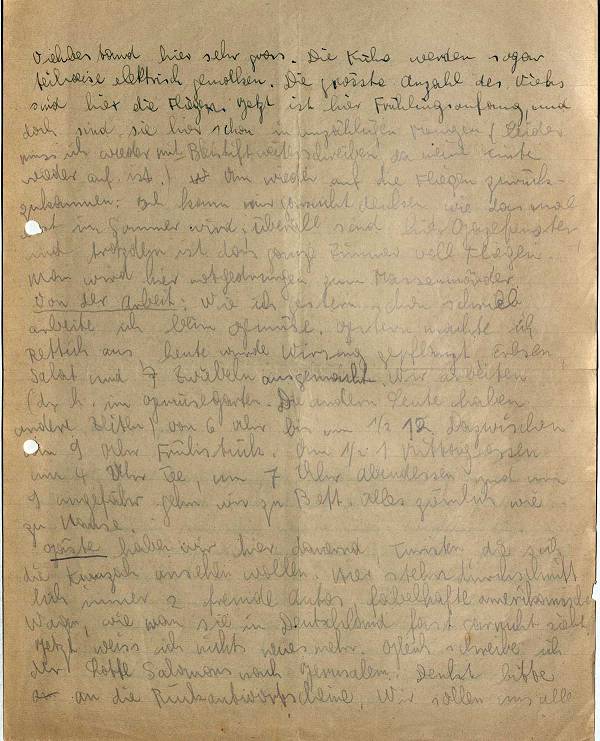 Viehbestand hier sehr gross. Die Kühe werden sogar
teilweise elektrisch gemolken. Die grösste Anzahl des Viehs
sind hier die Fliegen. Jetzt ist hier Frühlingsanfang, und
doch sind sie hier schon in unzähligen Mengen (Leider
muss ich wieder mit Bleistift weiterschreiben, da meine Tinte
wieder auf ist.) Um wieder auf die Fliegen zurück-
zukommen: kann man nicht denken wie das mal
erst im Sommer wird. Überall sind hier Gazefenster
und trotzdem ist das ganze Zimmer voll Fliegen.
Man wird hier notgedrungen zum Massenmörder.
Von der Arbeit: Wie ich gestern schon schrieb
arbeite ich beim Gemüse. Gestern machte ich
Rettich aus, heute wurde Wirsing gepflanzt, Erbsen,
Salat und Zwiebeln ausgemacht. Wir arbeiten
(d. h. im Gemüsegarten. Die andern Leute haben
andere Zeiten) von 6 Uhr bis um 1/2 12. Dazwischen
um 9 Uhr Frühstück. Um 1/2 1 Mittagessen
um 4 Uhr Tee, um 7 Uhr Abendessen und um
9 ungefähr gehn wir zu Bett. Alles ziemlich wie
zu Hause.
Gäste haben wir hier dauernd, Turisten die sich
die Kwuzah ansehen wollen. Hier stehn durchschnitt-
lich immer 2 fremde Autos, fabelhafte amerikanische
Wagen, wie man sie in Deutschland fast garnicht sieht.
Jetzt weiss ich nichts neues mehr. Gleich schreibe ich
der Lotte Salomons nach Jerusalem. Denkt bitte
an die Rückantwortscheine, Wir sollen uns alle